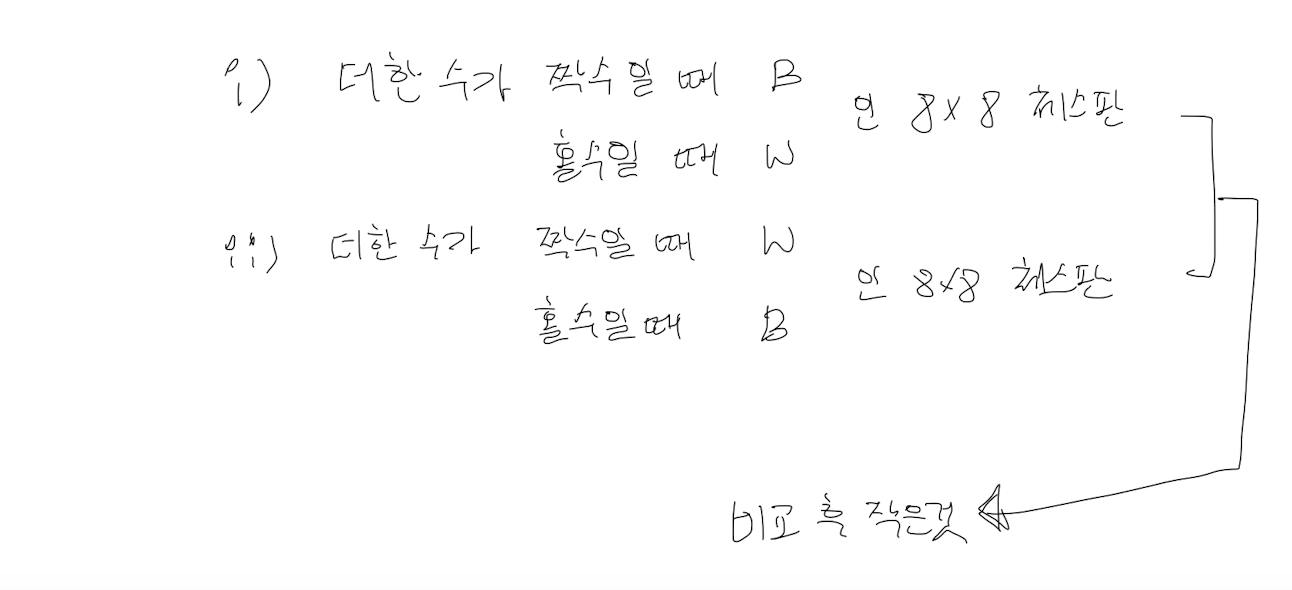 i) 더한 수가 짝수일 때 B
홀수일 때 W
인 8x8 체스판
ii) 더한 수가 짝수일 때 W
홀수일때 B
인 8x8 체스판
비교 후 작은것